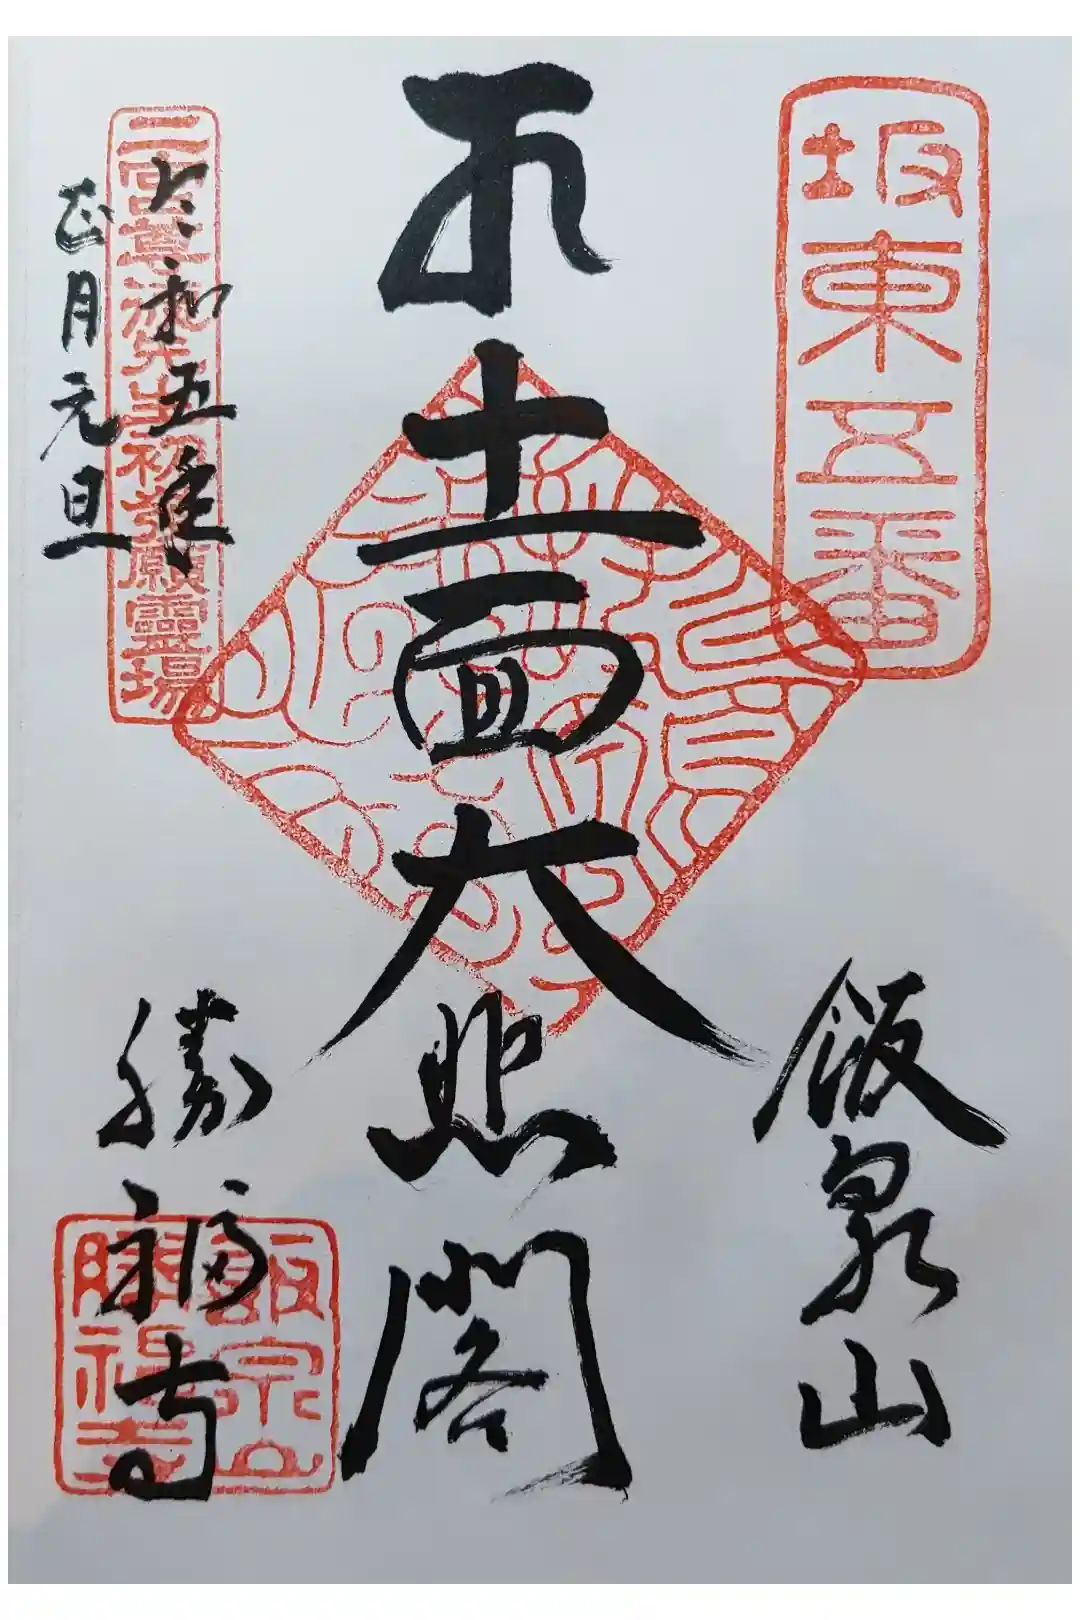 坂東五番
飯泉山
十一面大悲閣
令和五年
正月元旦
二宮尊徳先生初発願靈場
勝福寺
飯泉山
勝福寺